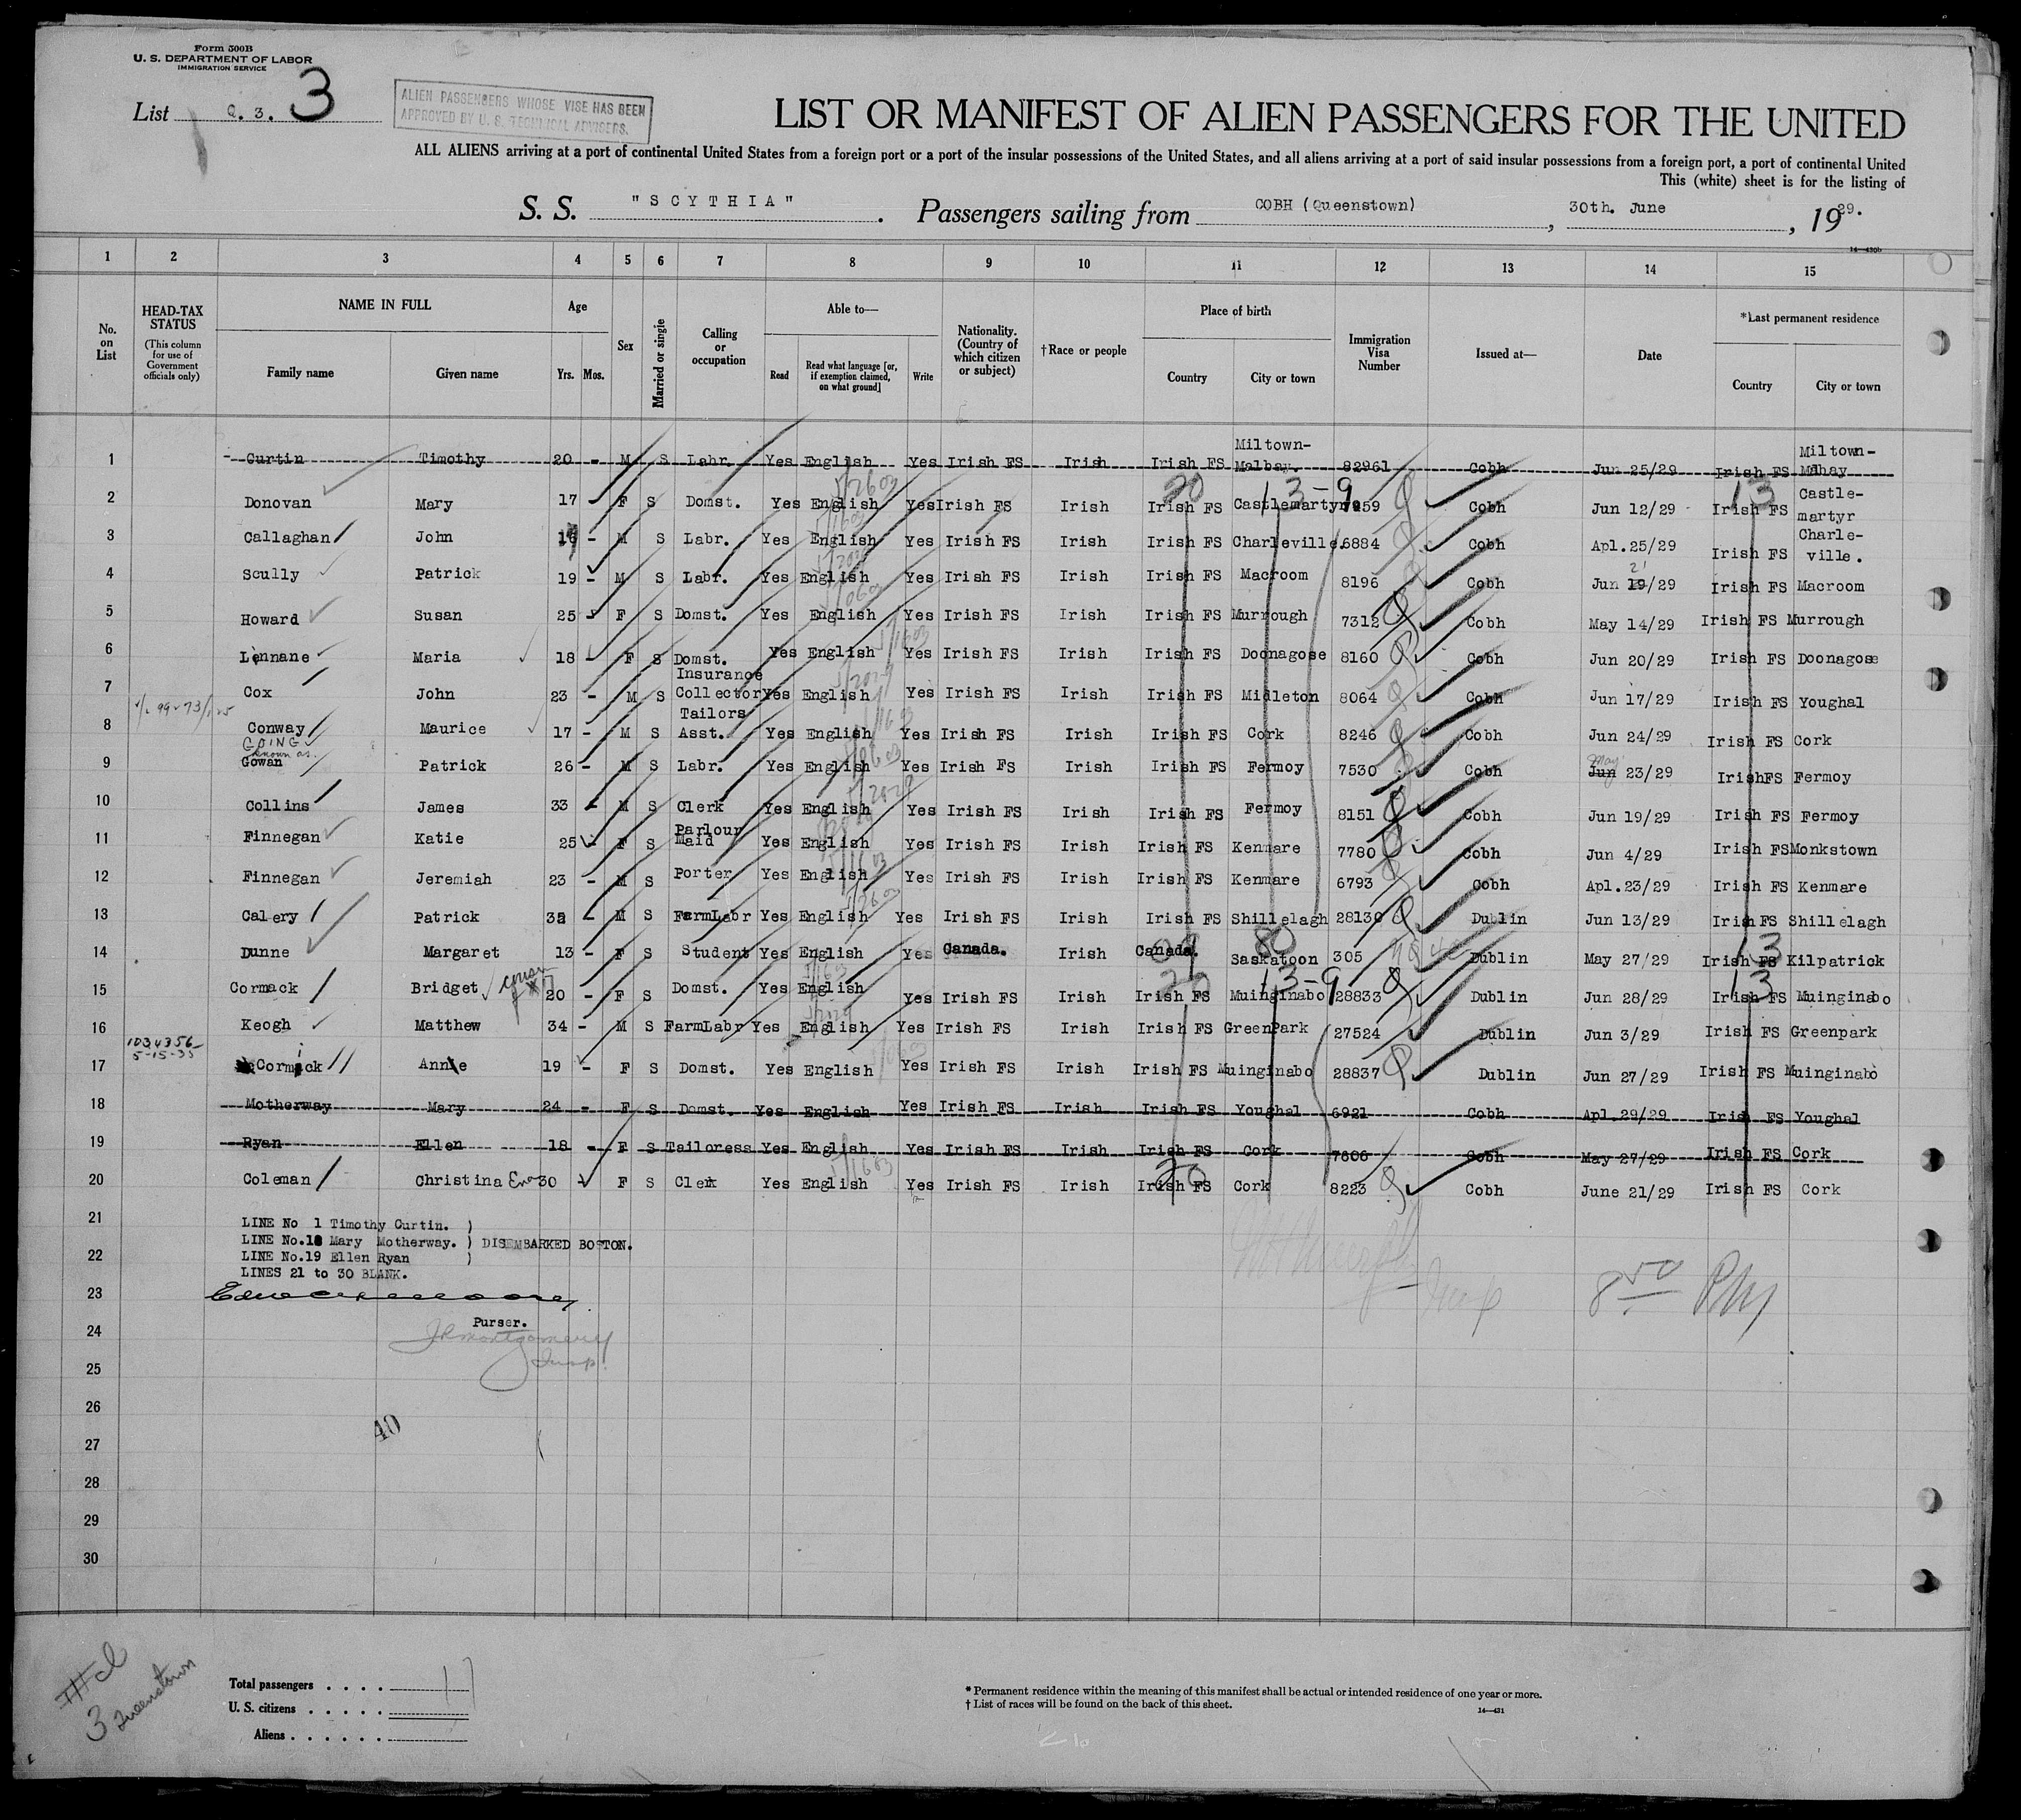 Form 500B
U. S. DEPARTMENT OF LABOR
IMMIGRATION SERVICE
List Q. 3. 3
ALIEN PASSENGERS WHOSE VISE HAS BEEN
APPROVED BY U. S. TECHNICAL ADVISERS.
LIST OR MANIFEST OF ALIEN PASSENGERS FOR THE UNITED
ALL ALIENS arriving at a port of continental United States from a foreign port or a port of the insular possessions of the United States, and all aliens arriving at a port of said insular possessions from a foreign port, a port of continental United
This (white) sheet is for the listing of
S. S. "SCYTHIA". Passengers sailing from COBH (Queenstown), 30th. June, 1929.
14—430b
1 2 3 4 5 6 7 8 9 10 11 12 13 14 15
No. on List
HEAD-TAX STATUS (This column for use of Government officials only)
NAME IN FULL Family name Given name
Age Yrs. Mos.
Sex
Married or single
Calling or occupation
Able to— Read Read what language [or, if exemption claimed, on what ground] Write
Nationality. (Country of which citizen or subject)
†Race or people
Place of birth Country City or town
Immigration Visa Number
Issued at—
Date
*Last permanent residence Country City or town
1 Curtin Timothy 20 - M S Labr. Yes English Yes Irish FS Irish Irish FS Miltown-Malbay. 82961 Cobh Jun 25/29 Irish FS Miltown-Mlbay
2 Donovan Mary 17 F S Domst. Yes English Yes Irish FS Irish Irish FS Castlemartyr 7959 Cobh Jun 12/29 Irish FS Castle-martyr
3 Callaghan John - M S Labr. Yes English Yes Irish FS Irish Irish FS Charleville. 6884 Cobh Apl.25/29 Irish FS Charle-ville.
4 Scully Patrick 19 - M S Labr. Yes English Yes Irish FS Irish Irish FS Macroom 8196 Cobh Jun 21/29 Irish FS Macroom
5 Howard Susan 25 - F S Domst. Yes English Yes Irish FS Irish Irish FS Murrough 7312 Cobh May 14/29 Irish FS Murrough
6 Lennane Maria 18 - F S Domst. Yes English Yes Irish FS Irish Irish FS Doonagose 8160 Cobh Jun 20/29 Irish FS Doonagose
7 Cox John 23 - M S Insurance Collector Yes English Yes Irish FS Irish Irish FS Midleton 8064 Cobh Jun 17/29 Irish FS Youghal
8 Conway Maurice 17 - M S Tailors Asst. Yes English Yes Irish FS Irish Irish FS Cork 8246 Cobh Jun 24/29 Irish FS Cork
GOING known as.
9 Gowan Patrick 26 - M S Labr. Yes English Yes Irish FS Irish Irish FS Fermoy 7530 Cobh May Jun 23/29 IrishFS Fermoy
10 Collins James 33 - M S Clerk Yes English Yes Irish FS Irish Irish FS Fermoy 8151 Cobh Jun 19/29 Irish FS Fermoy
11 Finnegan Katie 25 - F S Parlour Maid Yes English Yes Irish FS Irish Irish FS Kenmare 7780 Cobh Jun 4/29 Irish FS Monkstown
12 Finnegan Jeremiah 23 - M S Porter Yes English Yes Irish FS Irish Irish FS Kenmare 6793 Cobh Apl.23/29 Irish FS Kenmare
13 Calery Patrick - M S FarmLabr Yes English Yes Irish FS Irish Irish FS Shillelagh 28130 Dublin Jun 13/29 Irish FS Shillelagh
14 Dunne Margaret 13 - F S Student Yes English Yes Canada. Irish Canada. Saskatoon 305 Dublin May 27/29 Irish FS Kilpatrick
15 Cormack Bridget 20 - F S Domst. Yes English Yes Irish FS Irish Irish FS Muinginabo 28833 Dublin Jun 28/29 Irish FS Muinginabo
16 Keogh Matthew 34 - M S FarmLabr Yes English Yes Irish FS Irish Irish FS GreenPark 27524 Dublin Jun 3/29 Irish FS Greenpark
1034356
5-15-35
17 Cormick Annie 19 - F S Domst. Yes English Yes Irish FS Irish Irish FS Muinginabo 28837 Dublin Jun 27/29 Irish FS Muinginabo
18 Motherway Mary 24 - F S Domst. Yes English Yes Irish FS Irish Irish FS Youghal 6921 Cobh Apl.29/29 Irish FS Youghal
19 Ryan Ellen 18 - F S Tailoress Yes English Yes Irish FS Irish Irish FS Cork 7606 Cobh May 27/29 Irish FS Cork
20 Coleman Christina 30 F S Clerk Yes English Yes Irish FS Irish Irish FS Cork 8223 Cobh June 21/29 Irish FS Cork
21
LINE No 1 Timothy Curtin. )
LINE No.18 Mary Motherway. ) DISEMBARKED BOSTON.
22
LINE No.19 Ellen Ryan )
LINES 21 to 30 BLANK.
23
Purser.
24
JRMontgomery
Insp.
8 50 PM
25
26
40
27
28
29
30
#2
3 Queenstown
Total passengers . . . . 17
U. S. citizens . . . . .
Aliens . . . . . .
* Permanent residence within the meaning of this manifest shall be actual or intended residence of one year or more.
† List of races will be found on the back of this sheet.
14—431